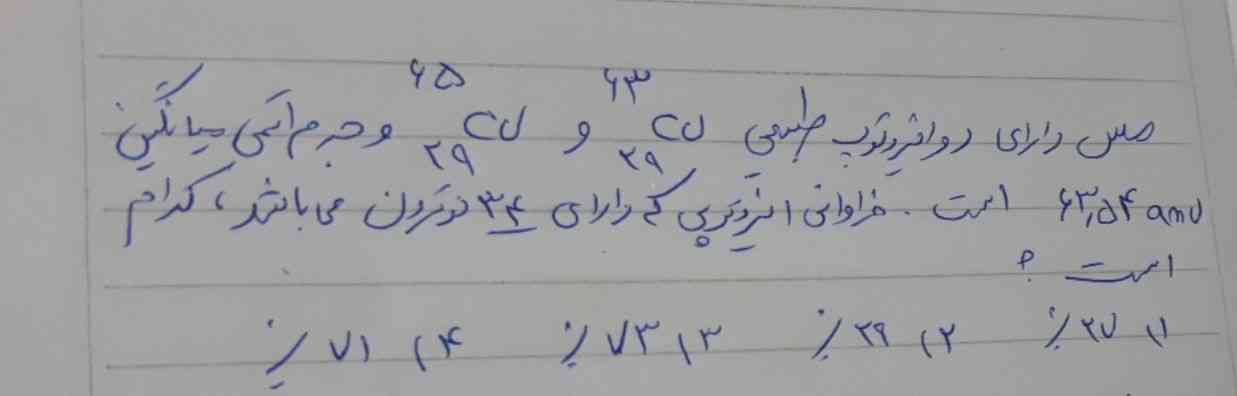 مس دارای دو ایزوتوپ طبیعی ⁶³₂₉Cu و ⁶⁵₂₉Cu و جرم اتمی میانگین
۶۳٫۵۴ amu است. فراوانی ایزوتوپی که دارای ۳۴ نوترون می باشد، کدام
است ؟
۱) ۲۷٪ ۲) ۲۹٪ ۳) ۷۳٪ ۴) ۷۱٪